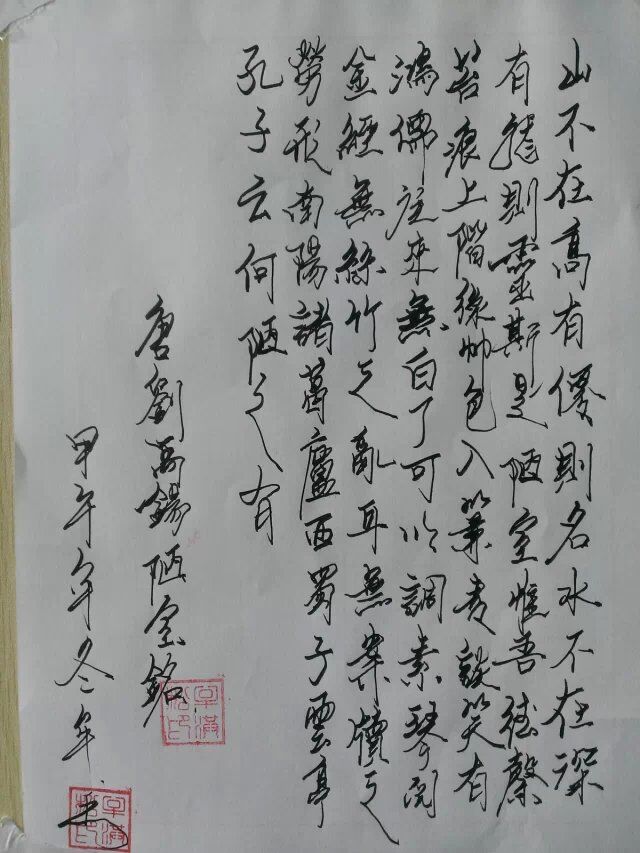 山不在高有僊則名水不在深
有龍則靈斯是陋室惟吾德馨
苔痕上階緑艸色入簾青談笑有
鴻儒往來無白丁可以調素琴閱
金經無絲竹之亂耳無案牘之
勞形南陽諸葛廬西蜀子雲亭
孔子云何陋之有
唐劉禹錫陋室銘
甲午年冬